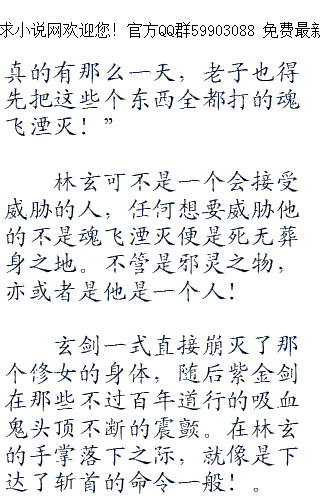 求小说网欢迎您！官方QQ群59903088 免费最新
真的有那么一天，老子也得
先把这些个东西全都打的魂
飞湮灭！”
林玄可不是一个会接受
威胁的人，任何想要威胁他
的不是魂飞湮灭便是死无葬
身之地。不管是邪灵之物，
亦或者是他是一个人！
玄剑一式直接崩灭了那
个修女的身体，随后紫金剑
在那些不过百年道行的吸血
鬼头顶不断的震颤。在林玄
的手掌落下之际，就像是下
达了斩首的命令一般！。